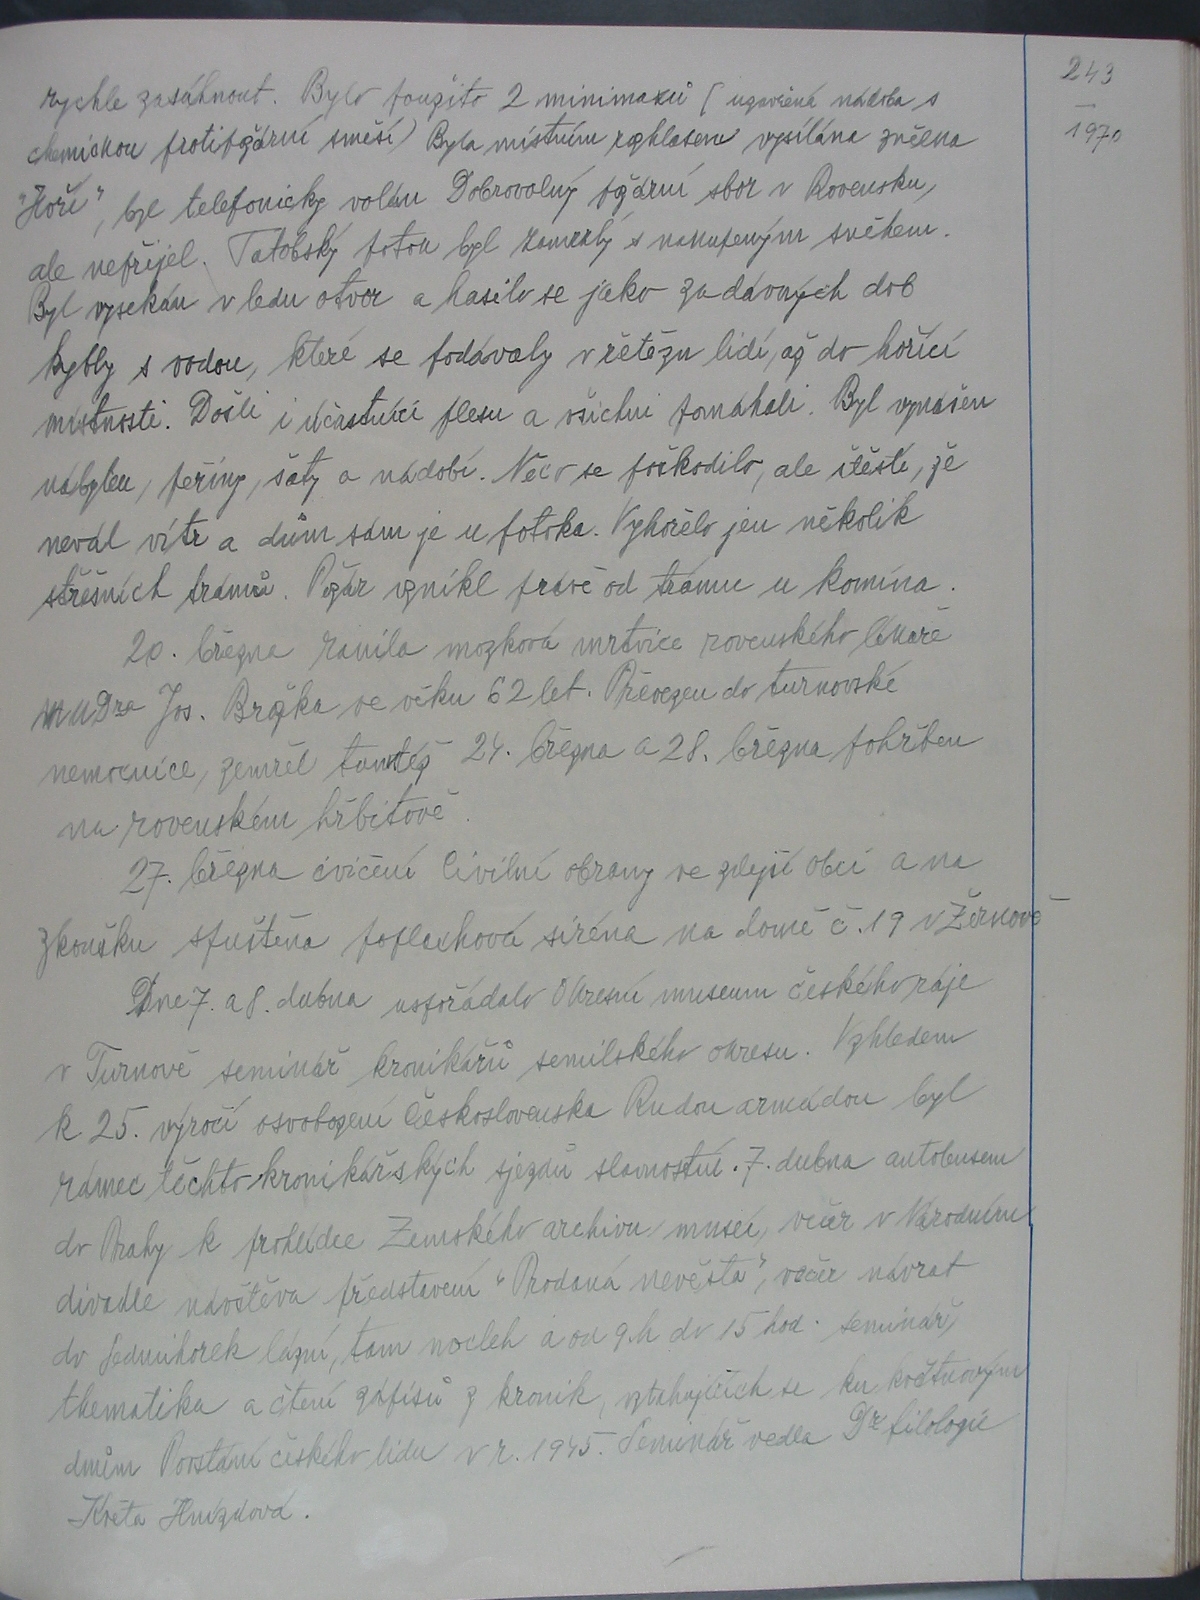 243
1970
rychle zasáhnout. Bylo použito 2 minimaxů (uzavřená nádoba s
chemickou protipožární směsí) Byla místním rozhlasem vysílána znělka
"Hoří", byl telefonicky volán Dobrovolný požární sbor v Rovensku,
ale nepřijel. Tatobský potok byl zamrzlý s nakupeným sněhem.
Byl vysekán v ledu otvor a hasilo se jako za dávných dob
kýbly s vodou, které se podávaly v řetězu lidí, až do hořící
místnosti. Došli i účastníci plesu a všichni pomáhali. Byl vynášen
nábytek, peřiny, šaty a nádobí. Něco se poškodilo, ale štěstí, že
nevál vítr a dům sám je u potoka. Vyhořelo jen několik
střešních trámů. Požár vznikl právě od trámu u komína.
20. března ranila mozková mrtvice rovenského lékaře
MUDra Jos. Brožka ve věku 62 let. Převezen do turnovské
nemocnice, zemřel tamtéž 24. března a 28. března pohřben
na rovenském hřbitově.
27. března cvičení Civilní obrany ve zdejší obci a na
zkoušku spuštěna poplachová siréna na domě č. 19 v Žernově
Dne 7. a 8. dubna uspořádalo Okresní museum českého ráje
v Turnově seminář kronikářů semilského okresu. Vzhledem
k 25. výročí osvobození Československa Rudou armádou byl
rámec těchto kronikářských sjezdů slavnostní. 7. dubna autobusem
do Prahy k prohlídce Zemského archivu, museí, večer v Národním
divadle návštěva představení "Prodaná nevěsta", večer návrat
do Sedmihorek lázní, tam nocleh a od 9.h do 15 hod. seminář,
thematika a čtení zápisů z kronik, vztahujících se ku květnovým
dnům Povstání českého lidu v r. 1945. Seminář vedla Dr filologie
Květa Hnízdová.